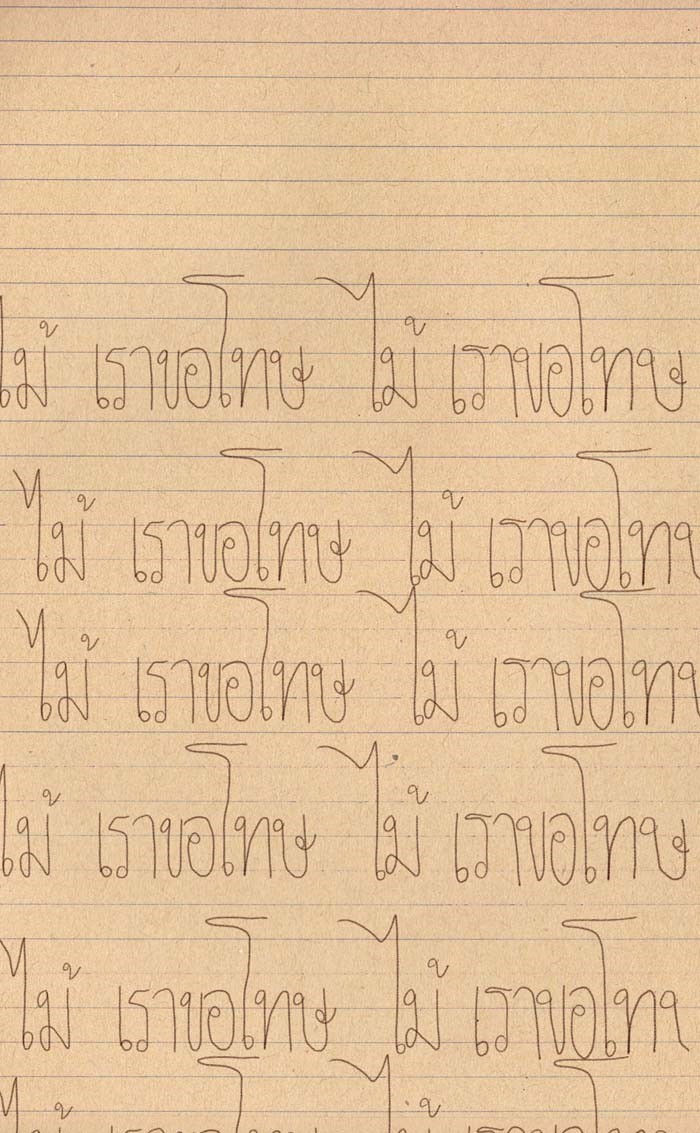 ไม้ เราขอโทษ ไม้ เราขอโทษ
ไม้ เราขอโทษ ไม้ เราขอโทษ
ไม้ เราขอโทษ ไม้ เราขอโทษ
ไม้ เราขอโทษ ไม้ เราขอโทษ
ไม้ เราขอโทษ ไม้ เราขอโท